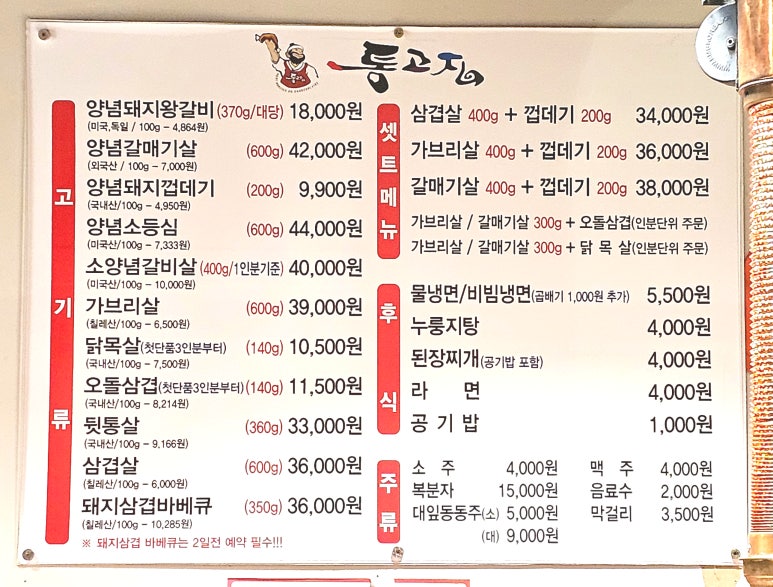 통고집
고기류
양념돼지왕갈비 (370g/대당) 18,000원
(미국,독일 / 100g - 4,864원)
양념갈매기살 (600g) 42,000원
(외국산 / 100g - 7,000원)
양념돼지껍데기 (200g) 9,900원
(국내산/100g - 4,950원)
양념소등심 (600g) 44,000원
(미국산/100g - 7,333원)
소양념갈비살 (400g/1인분기준) 40,000원
(미국산/100g - 10,000원)
가브리살 (600g) 39,000원
(칠레산/100g - 6,500원)
닭목살(첫단품3인분부터) (140g) 10,500원
(국내산/100g - 7,500원)
오돌삼겹(첫단품3인분부터) (140g) 11,500원
(국내산/100g - 8,214원)
뒷통살 (360g) 33,000원
(국내산/100g - 9,166원)
삼겹살 (600g) 36,000원
(칠레산/100g - 6,000원)
돼지삼겹바베큐 (350g) 36,000원
(칠레산/100g - 10,285원)
※ 돼지삼겹 바베큐는 2일전 예약 필수!!!
셋트메뉴
삼겹살 400g + 껍데기 200g 34,000원
가브리살 400g + 껍데기 200g 36,000원
갈매기살 400g + 껍데기 200g 38,000원
가브리살 / 갈매기살 300g + 오돌삼겹(인분단위 주문)
가브리살 / 갈매기살 300g + 닭 목 살(인분단위 주문)
후식
물냉면/비빔냉면(곱배기 1,000원 추가) 5,500원
누룽지탕 4,000원
된장찌개(공기밥 포함) 4,000원
라 면 4,000원
공 기 밥 1,000원
주류
소 주 4,000원 맥 주 4,000원
복분자 15,000원 음료수 2,000원
대잎동동주(소) 5,000원 막걸리 3,500원
(대) 9,000원